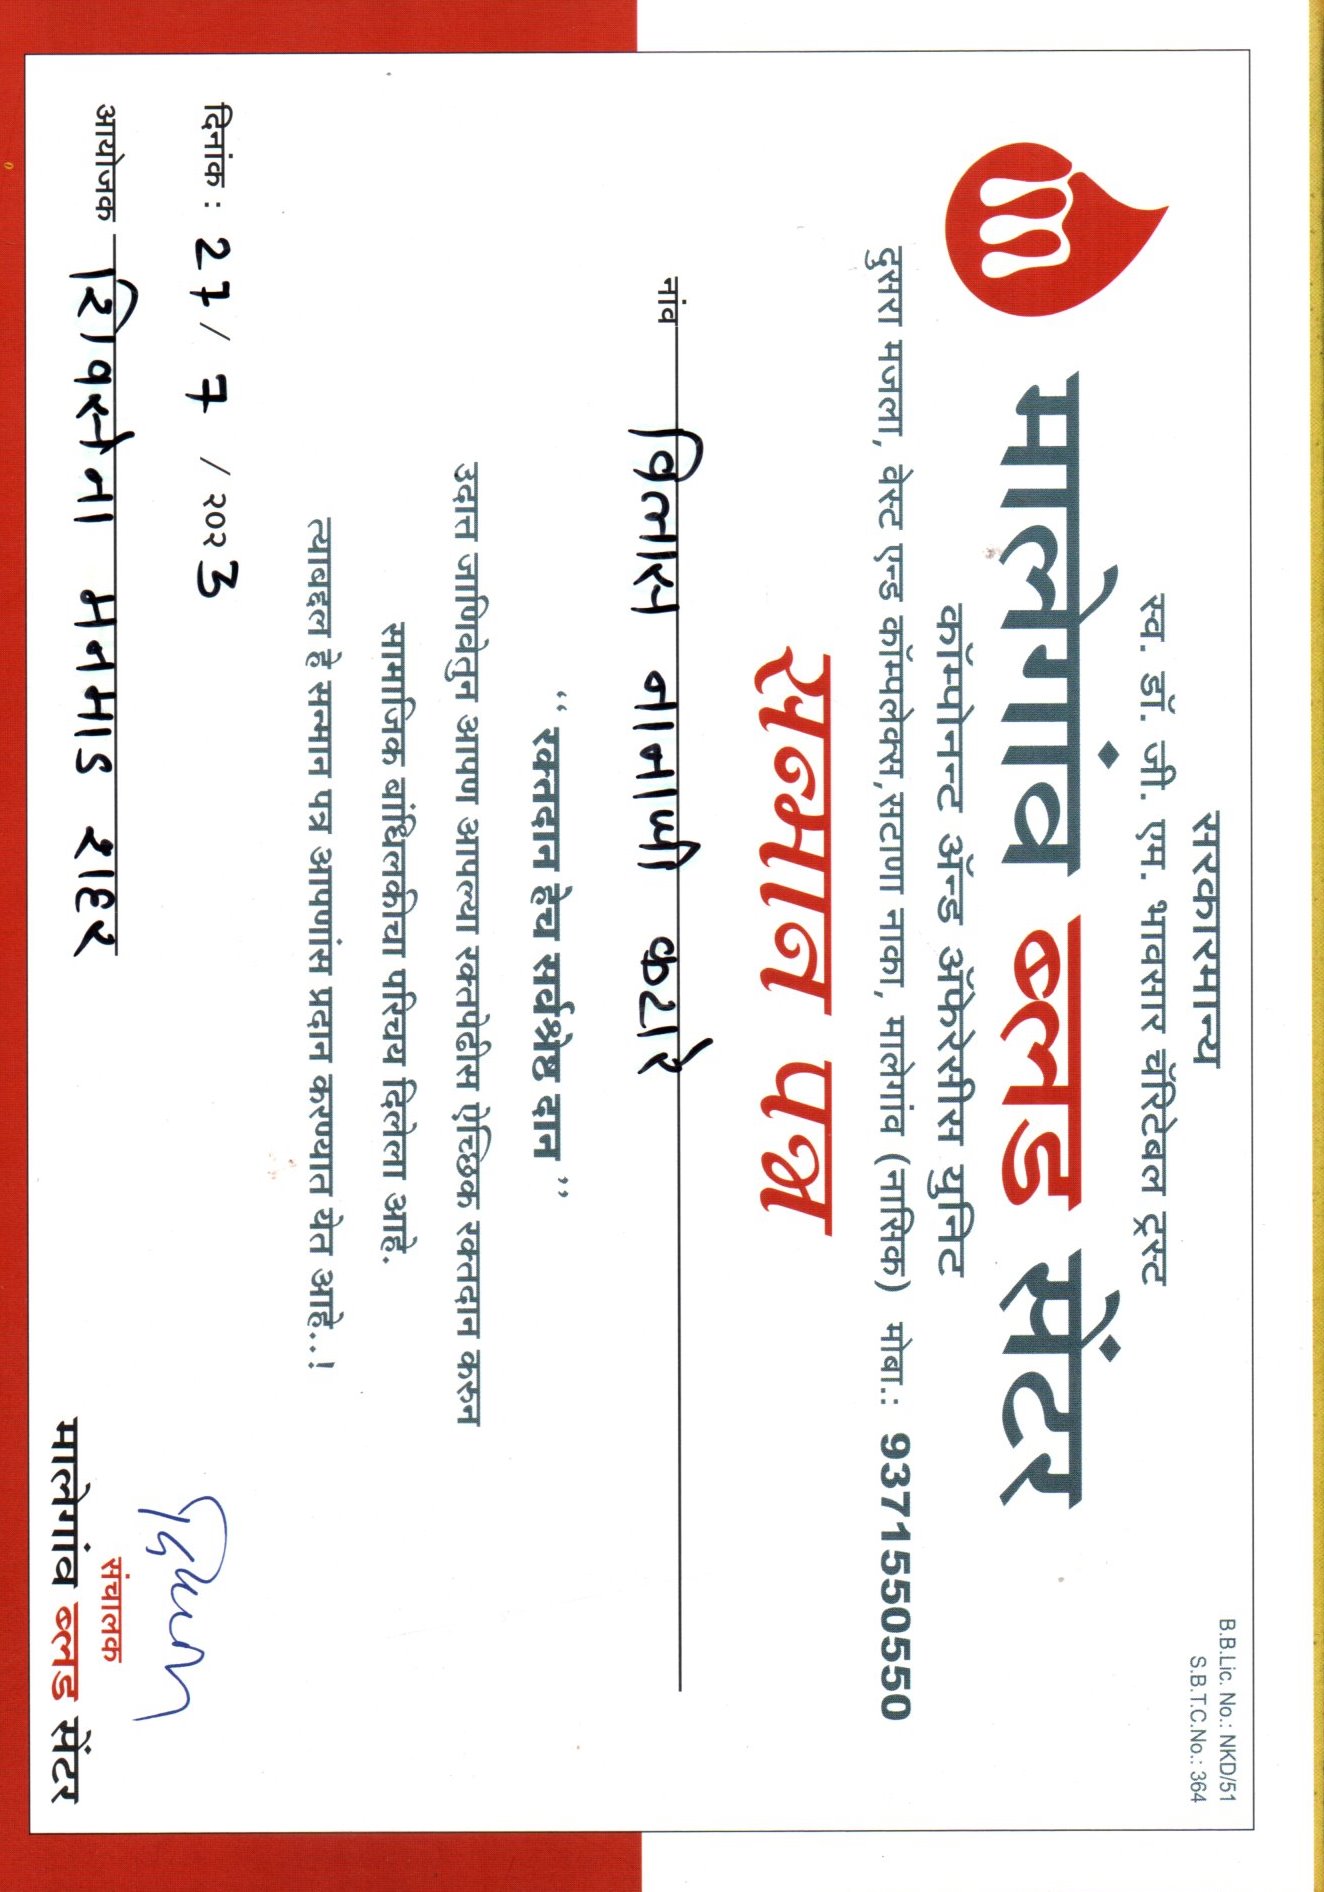 B.B.Lic. No.: NKD/51
S.B.T.C.No.: 364
सरकारमान्य
स्व. डॉ. जी. एम. भावसार चॅरिटेबल ट्रस्ट
मालेगांव ब्लड सेंटर
कॉम्पोनन्ट ॲन्ड ॲफेरेसीस युनिट
दुसरा मजला, वेस्ट एन्ड कॉम्पलेक्स,सटाणा नाका, मालेगांव (नासिक) मोबा.: 9371550550
सन्मान पत्र
नांव विलास नानाजी कटारे
“ रक्तदान हेच सर्वश्रेष्ठ दान ”
उदात्त जाणिवेतुन आपण आपल्या रक्तपेढीस ऐच्छिक रक्तदान करुन
सामाजिक बांधिलकीचा परिचय दिलेला आहे.
त्याबद्दल हे सन्मान पत्र आपणांस प्रदान करण्यात येत आहे..!
दिनांक : 27/ 7 / २०२3
आयोजक शिवसेना मनमाड शहर
संचालक
मालेगांव ब्लड सेंटर